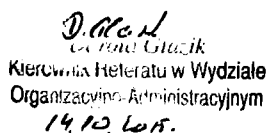 Dorota Gluzik
Kierownik Referatu w Wydziale
Organizacyjno-Administracyjnym
14.10.2015.